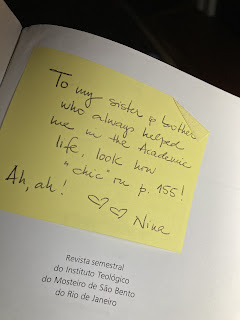 To my sister & brother
who always helped
me in the Academic
life, look how
"chic" on p. 155!
Ah, ah!
♡♡ Nina
Revista semestral
do Instituto Teológico
do Mosteiro de São Bento
do Rio de Janeiro